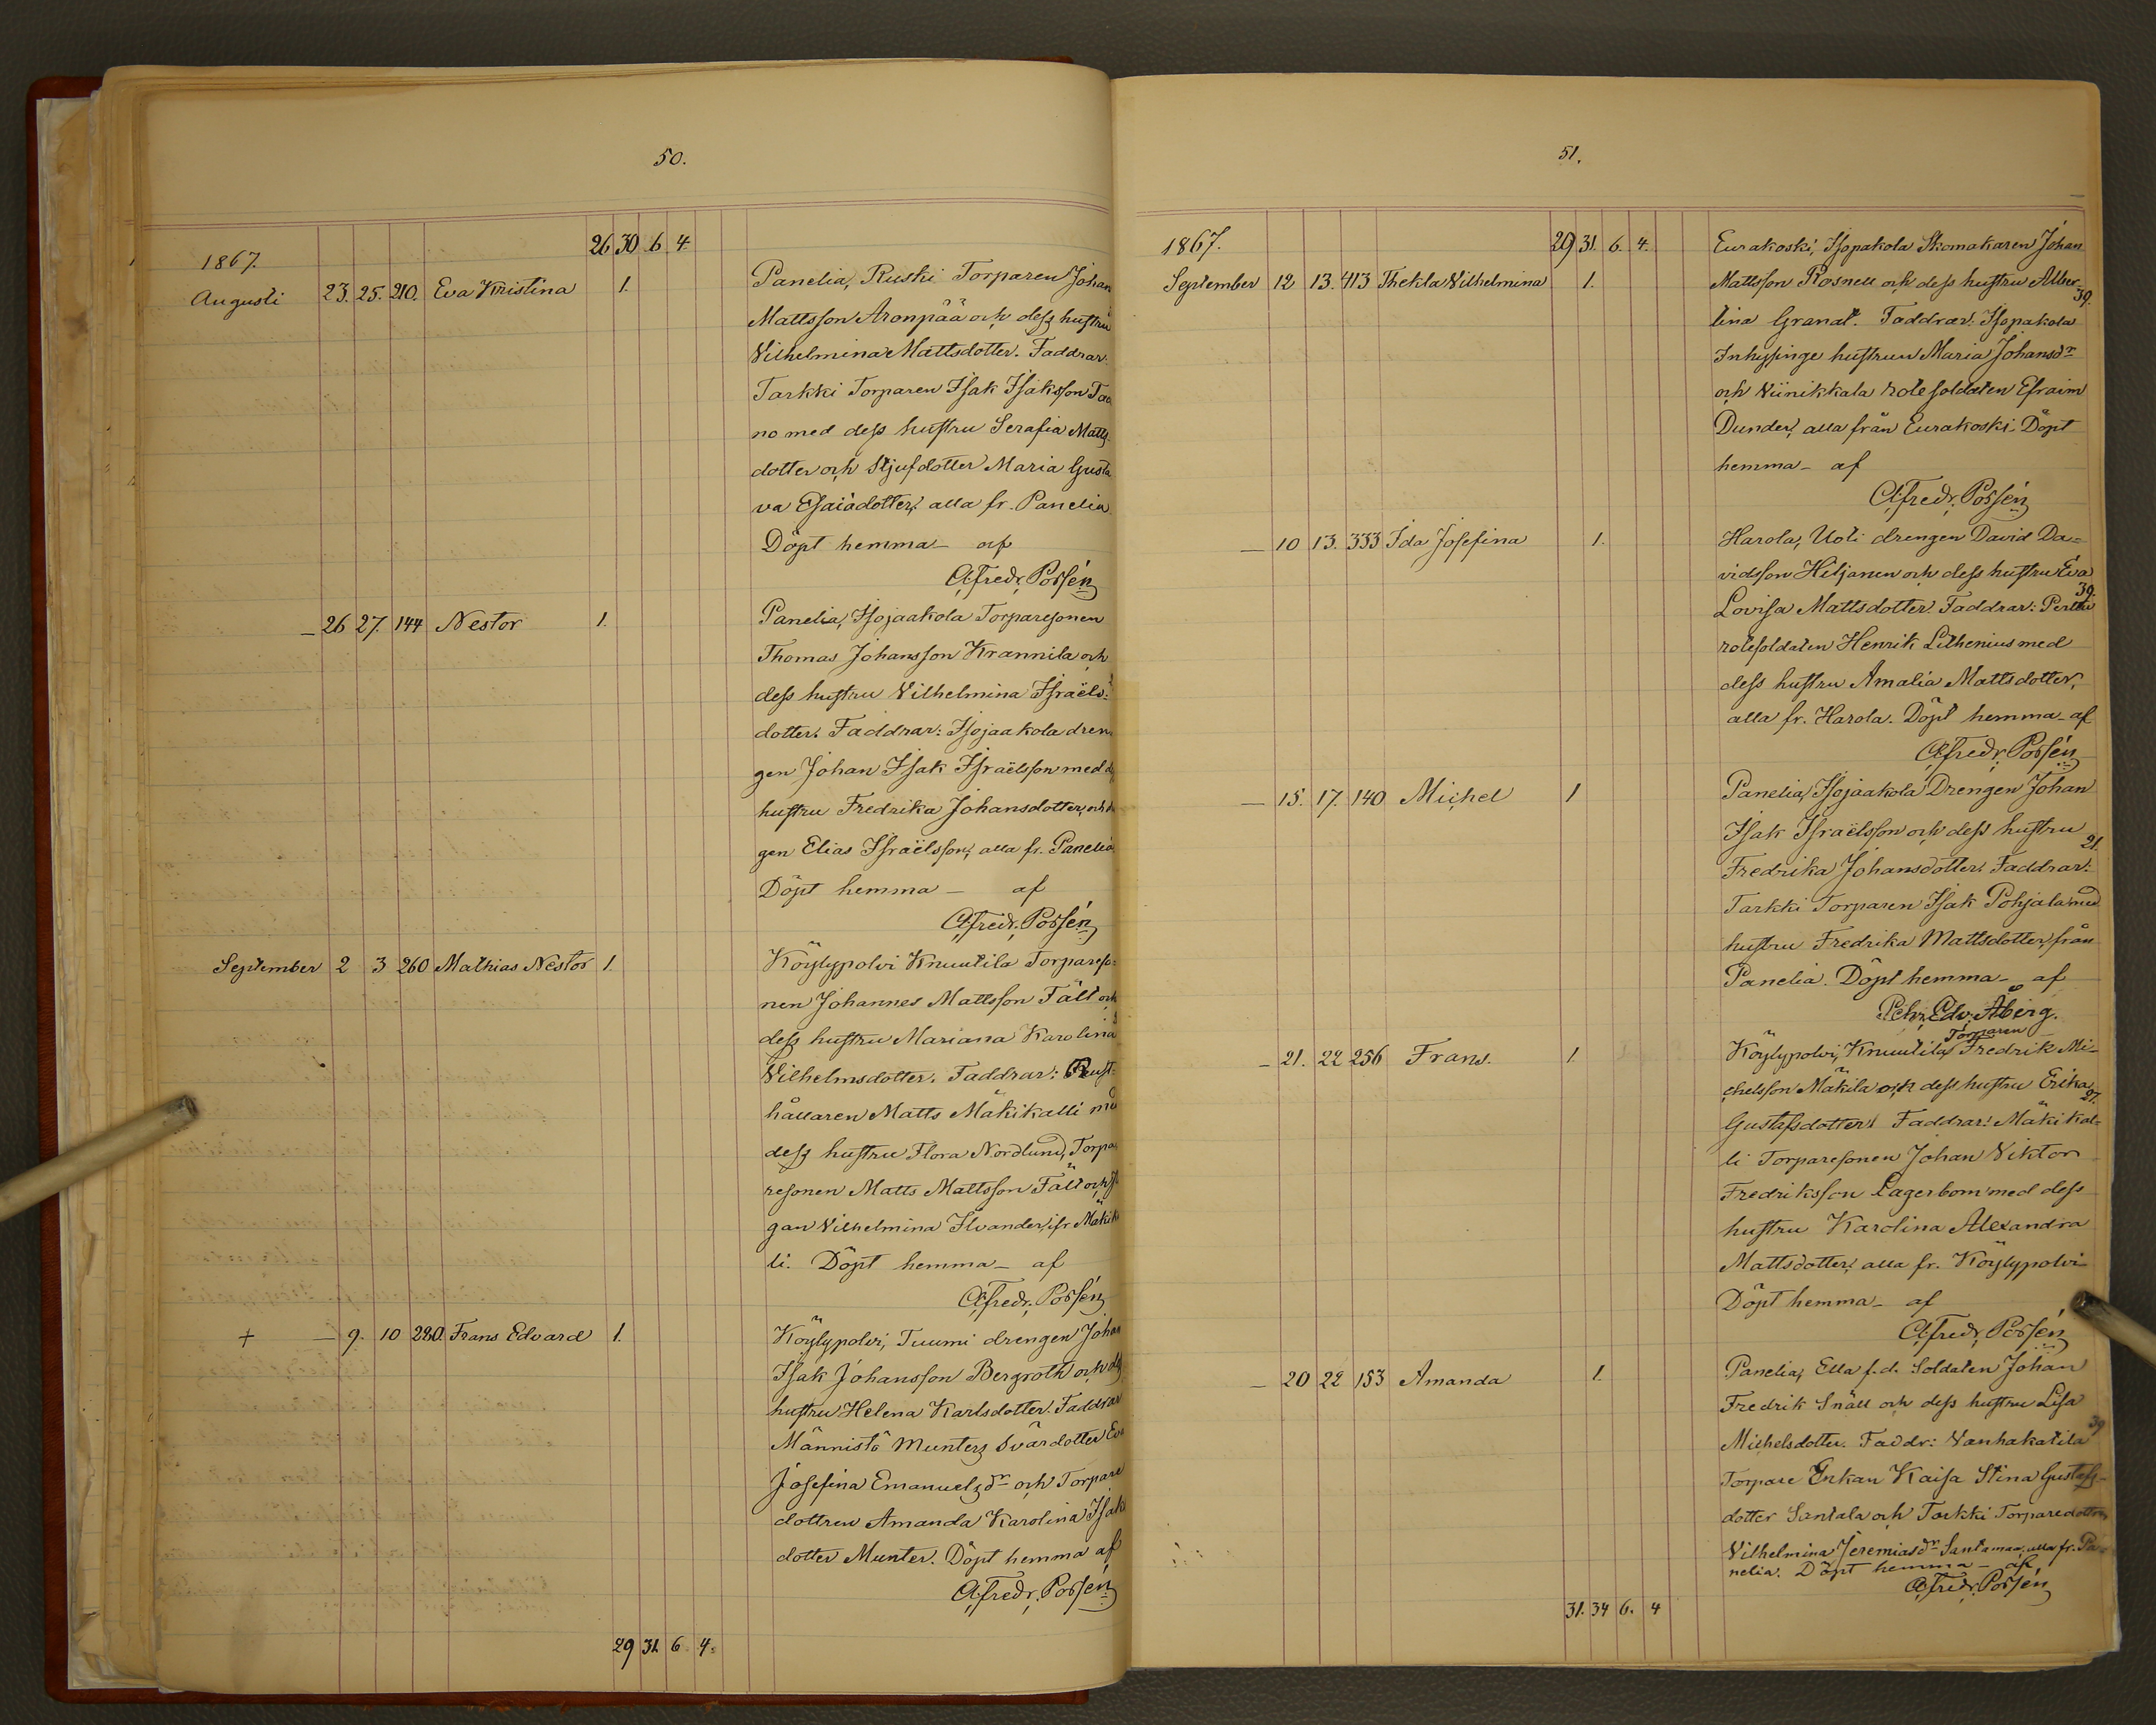 50.
26 30 6 4.
1867.
Augusti 23. 25. 210. Eva Kristina 1. Panelia, Ruski Torparen Johan
Mattsson Aronpää och dess hustru
Vilhelmina Mattsdotter. Faddrar:
Tarkki Torparen Isak Isaksson
no med dess hustru Serafia Matts-
dotter och Stjufdotter Maria Gusta
va Esaiädotter, alla fr. Panelia
Döpt hemma – af
A. Fredr. Possén
– 26 27. 144 Nestor 1. Panelia, Isojaakola Torparesonen
Thomas Johansson Krannila och
dess hustru Vilhelmina Israëls-
dotter. Faddrar: Isojaakola dren
gen Johan Isak Israëlsson med
hustru Fredrika Johansdotter, och
gen Elias Israëlsson, alla fr. Panelia
Döpt hemma – af
A. Fredr. Possén
September 2 3 260 Mathias Nestor 1. Köylypolvi Knuutila Torpareso-
nen Johannes Mattsson Fält och
dess hustru Mariana Karolina
Vilhelmsdotter. Faddrar: Rust-
hållaren Matts Mäkikalli med
dess hustru Flora Nordlund, Torpa
resonen Matts Mattsson Fält och
gan Vilhelmina Ilvander, fr. Mäkik
li. Döpt hemma – af
A. Fredr. Possén
+ – 9. 10 280. Frans Edvard 1. Köylypolvi, Tuumi drengen Johan
Isak Johansson Bergroth och
hustru Helena Karlsdotter. Faddrar
Männistö Munters Svärdotter Eva
Josefina Emanuelsdr och Torpare
dottren Amanda Karolina Isak
dotter Munter. Döpt hemma af
A. Fredr. Possén
29 31 6 4.
51.
1867. 29 31. 6. 4. Eurakoski, Isopakola Skomakaren Johan
September 12 13. 413 Thekla Vilhelmina 1. Mattsson Rosnell och dess hustru Alber-
39.
tina Granat. Faddrar: Isopakola
Inhysinge hustrun Maria Johansdr
och Viinikkala rotesoldaten Efraim
Dunder, alla från Eurakoski. Döpt
hemma – af
A. Fredr. Possén
– 10 13. 333 Ida Josefina 1. Harola, Uoti drengen David Da-
vidsson Hiljanen och dess hustru Eva
39.
Lovisa Mattsdotter. Faddrar: Perttu
rotesoldaten Henrik Lithenius med
dess hustru Amalia Mattsdotter,
alla fr. Harola. Döpt hemma – af
A. Fredr. Possén
– 15. 17. 140 Michel 1 Panelia, Isojaakola Drengen Johan
Isak Israëlsson och dess hustru
21.
Fredrika Johansdotter. Faddrar:
Tarkki Torparen Isak Pohjala med
hustru Fredrika Mattsdotter, från
Panelia. Döpt hemma – af
Pehr Edv. Åberg.
Torparen
– 21. 22 256 Frans. 1. Köylypolvi, Knuutila, Fredrik Mi-
chelsson Mäkilä och dess hustru Erika
27.
Gustafsdotter. Faddrar: Mäkikal-
li Torparesonen Johan Viktor
Fredriksson Lagerbom med dess
hustru Karolina Alexandra
Mattsdotter, alla fr. Köylypolvi
Döpt hemma – af
A. Fredr. Possén
– 20 22 153 Amanda 1. Panelia, Ella f.d. Soldaten Johan
Fredrik Snäll och dess hustru Lisa
39
Michelsdotter. Faddr: Vanhakatila
Torpare Enkan Kaisa Stina Gustafs-
dotter Santala och Tarkki Torparedottren
Vilhelmina Jeremiasdr Santamaa, alla fr. Pa-
nelia. Döpt hemma – af
A. Fredr. Possén
31. 34 6. 4